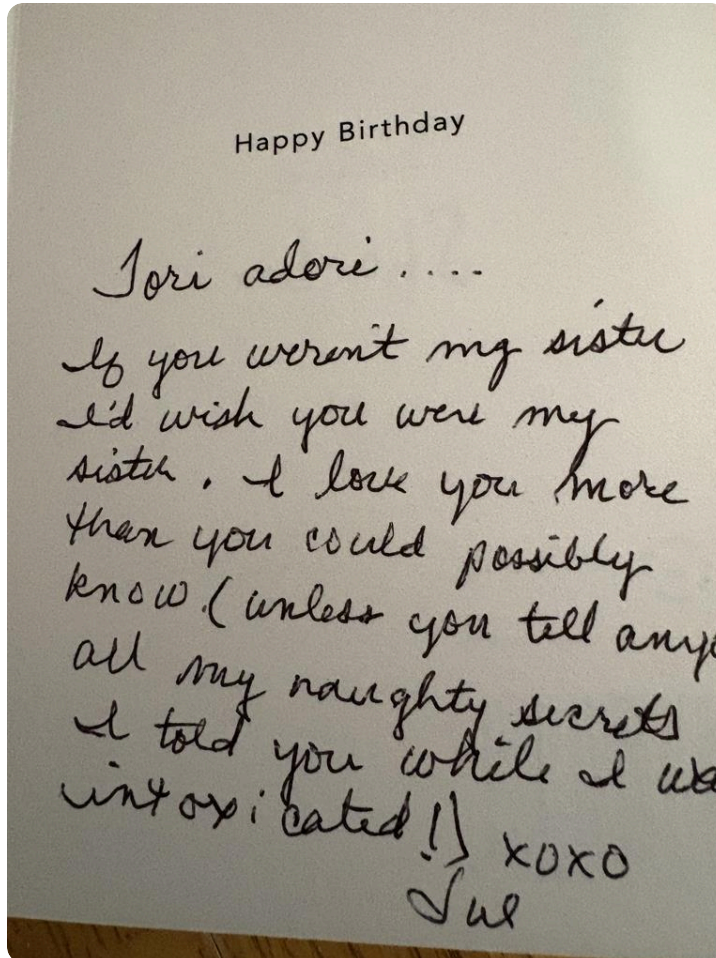 Happy Birthday
Tori adori....
If you weren't my sister
I'd wish you were my
sister. I love you more
than you could possibly
know. (unless you tell
all my naughty secrets
I told you while I
intoxicated!) xoxo
Sue